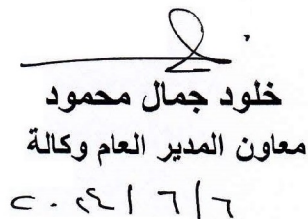 خلود جمال محمود
معاون المدير العام وكالة
٢٠٢٤/٦/٦